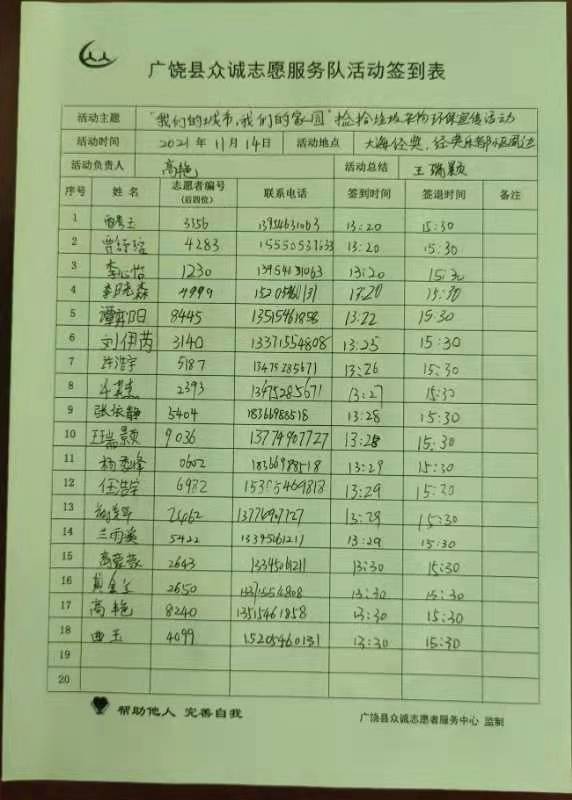 广饶县众诚志愿服务队活动签到表
活动主题 "我们的城市,我们的家园"捡拾垃圾 环保宣传活动
活动时间 2021年11月14日 活动地点 大海经典、经典乐都小区周边
活动负责人 高艳 活动总结 王瑞颖
序号 姓名 志愿者编号(后四位) 联系电话 签到时间 签退时间 备注
1 3356 13954631063 13:20 15:30
2 4283 13:20 15:30
3 李心怡 1230 13:20 15:30
4 李晓森 4999 13:20 15:30
5 8445 13515461858 13:22 15:30
6 刘伊芮 3140 13371554808 13:25 15:30
7 许浩宇 5187 13475285671 13:26 15:30
8 2393 13475285671 13:27 15:30
9 张依静 5404 18366988518 13:28 15:30
10 王瑞颖 9036 13774907727 13:28 15:30
11 0602 18366988518 13:29 15:30
12 任浩宇 6982 13:29 15:30
13 13:29 15:30
14 兰雨溪 5422 13345261211 13:29 15:30
15 2643 13345261211 13:30 15:30
16 2650 13371554808 13:30 15:30
17 高艳 8240 13515461858 13:30 15:30
18 曲玉 4099 15205460131 13:30 15:30
19
20
帮助他人 完善自我 广饶县众诚志愿者服务中心 监制